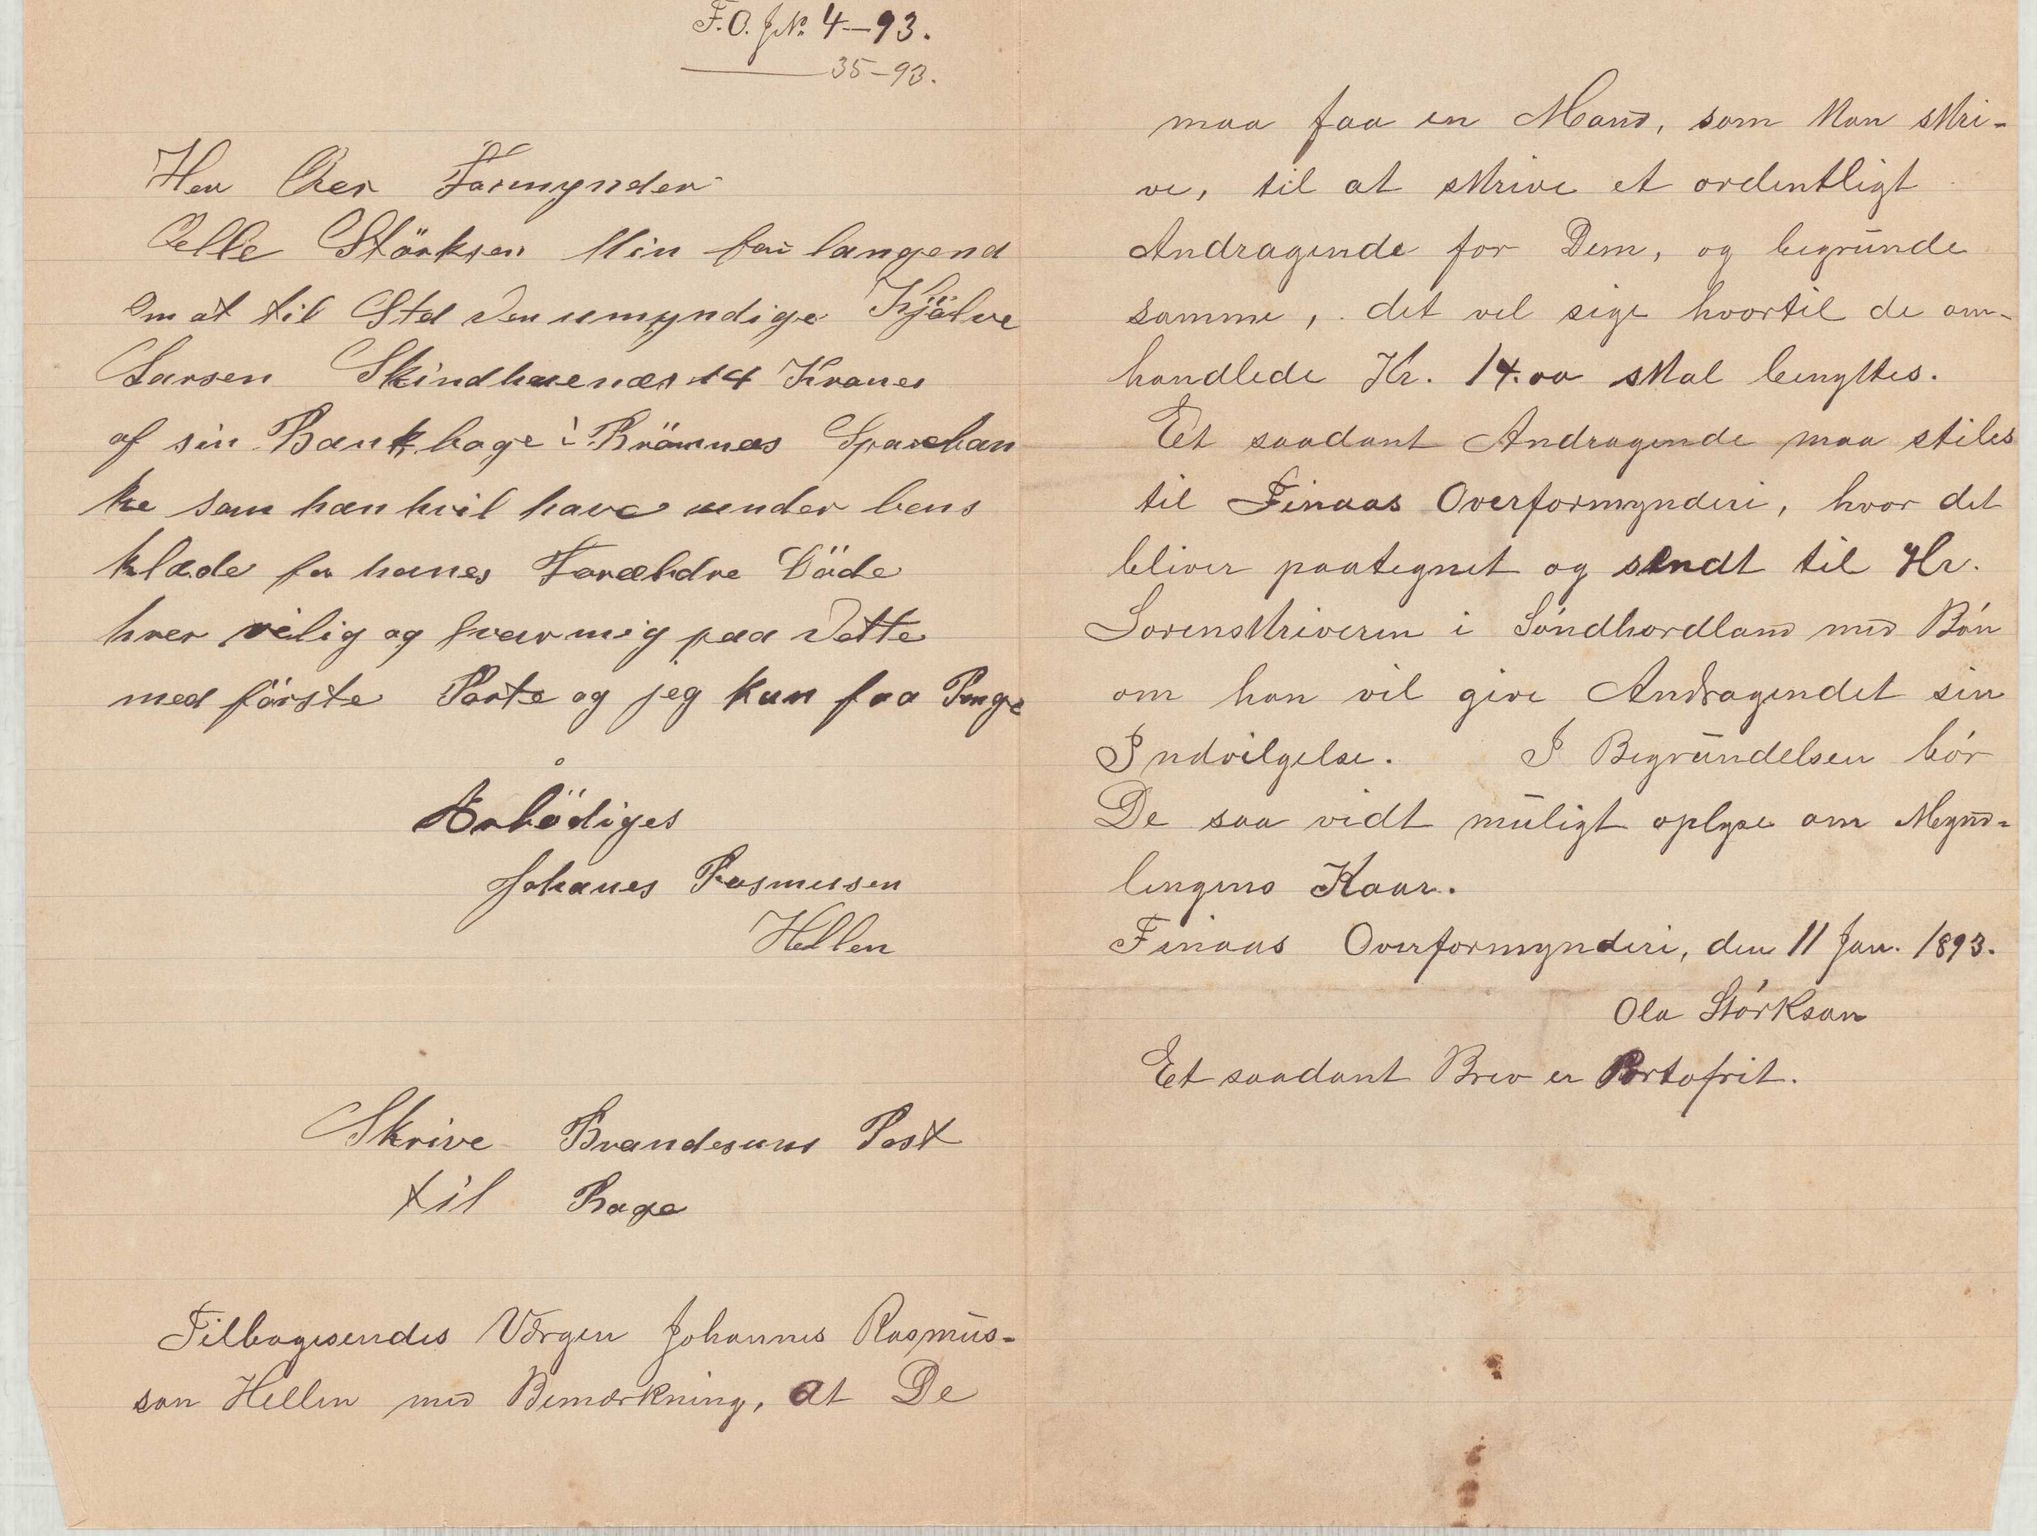 F.O. J.№ 4-93.
35-93.
Her Over Formynder
Oelle Störksen Min for langend
Om at til Sted den umyndige Kjölve
Larsen Skindhuenæs 14 Kroner
af sin Bank bage i Brömnæs Spareban
ke som han hvil have under bens
klæde for hanes Forældre Döde
hver vilig og svar mig paa dette
med förste Poste og jeg kan faa Penge
Ærbödiges
Johanes Rasmusen
Hellen
Skrive Brandesuns Post
til Bage
Tilbagesendes Værgen Johannes Rasmus-
son Hellen med Bemærkning, at De
maa faa en Mand, som kan skri-
ve, til at skrive et ordentligt
Andragende for Dem, og begrunde
samme, det vel sige hvortil de om-
handlede Kr. 14.00 skal benyttes.
Et saadant Andragende maa stiles
til Finaas Overformynderi, hvor det
bliver paategnet og sendt til Hr.
Sorenskriveren i Söndhordland med Bón
om han vil give Andragendet sin
Indvilgelse. I Begrundelsen bór
De saa vidt muligt oplyse om Mynd-
lingens Kaar.
Finaas Overformynderi, den 11 Jan. 1893.
Ola Stórkson
Et saadant Brev er Portofrit.